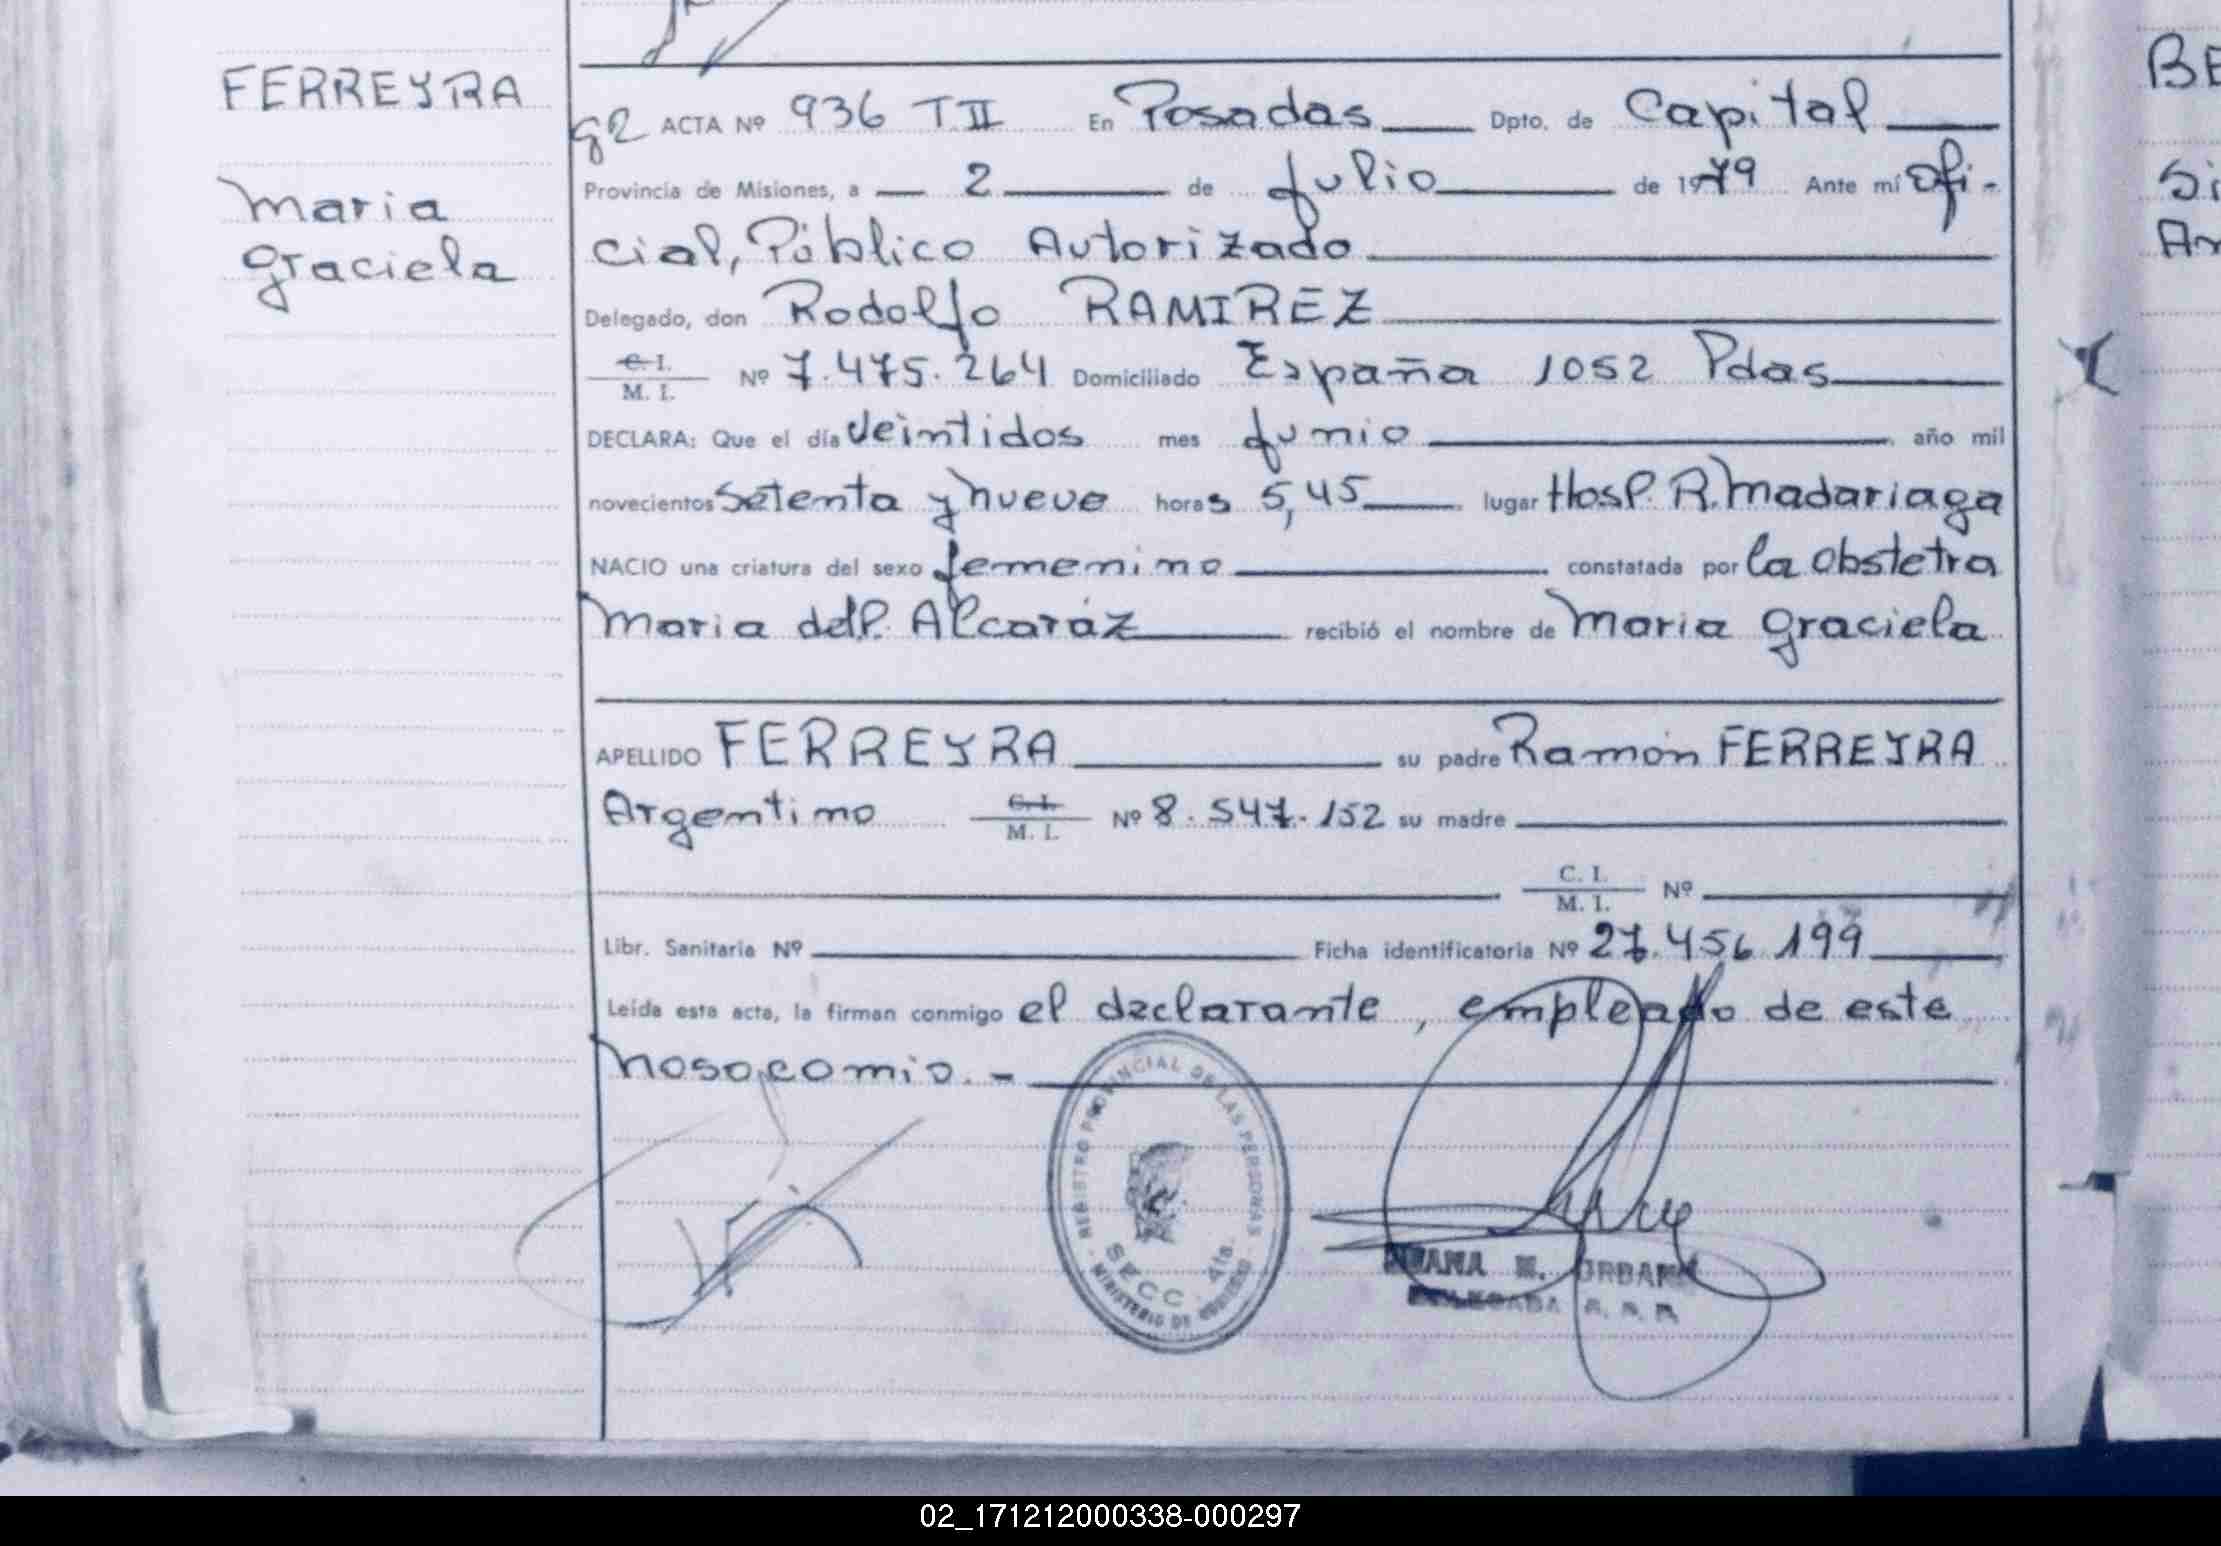 FERREYRA
Maria
Graciela
92 ACTA Nº 936 T.II En Posadas Dpto. de Capital
Provincia de Misiones, a 2 de Julio de 1979 Ante mí Ofi-
cial, Público Autorizado
Delegado, don Rodolfo RAMIREZ
C.I.
M. I.
Nº 7.475.264 Domiciliado España 1052 Pdas
DECLARA: Que el día Veintidos mes Junio, año mil
novecientos Setenta y nueve horas 5,45 lugar Hosp. R. Madariaga
NACIO una criatura del sexo femenino constatada por la Obstetra
Maria del P. Alcaráz recibió el nombre de Maria Graciela
APELLIDO FERREYRA su padre Ramón FERREYRA
Argentino
C.I.
M. I.
Nº 8.547.152 su madre
C. I.
M. I.
Nº
Libr. Sanitaria Nº Ficha identificatoria Nº 27.456.199
Leída esta acta, la firman conmigo el declarante, empleado de este
nosocomio.-
REGISTRO PROVINCIAL DE LAS PERSONAS
SECC. 4ta.
MINISTERIO DE GOBIERNO
BE
Si
02_171212000338-000297